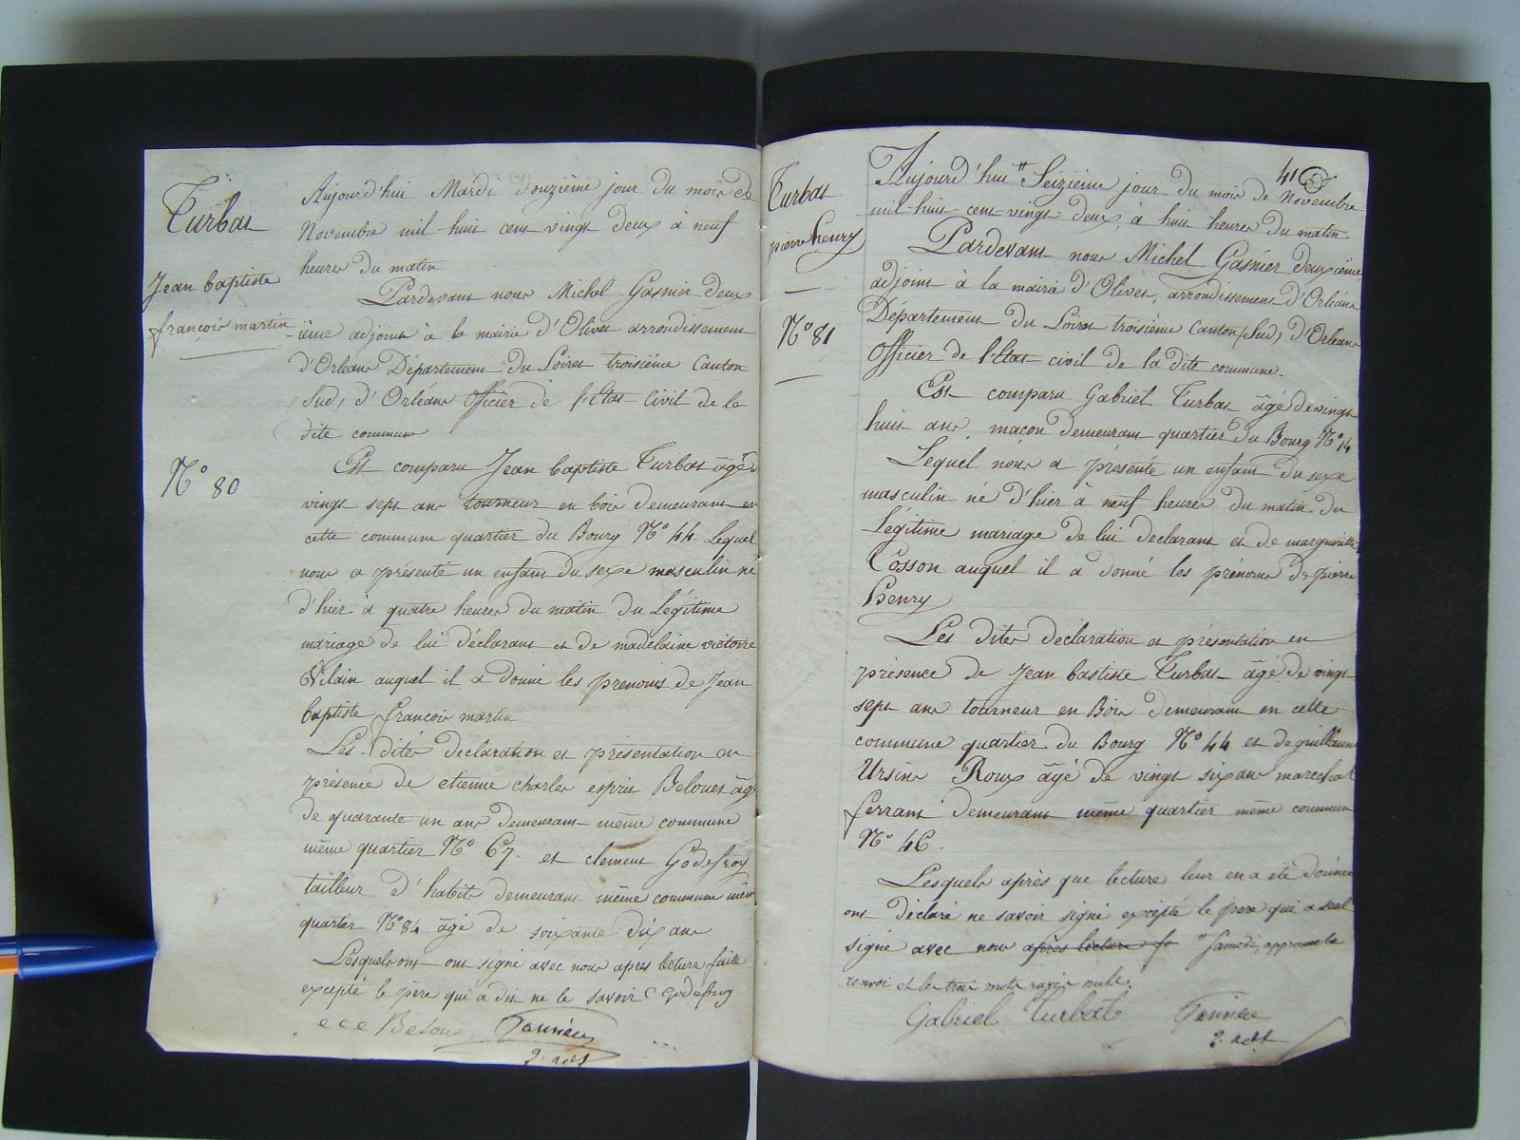 Turbat
Jean baptiste
françois martin
N° 80
Aujourd'hui Mardi Douzième jour du mois de
Novembre mil-huit cent vingt deux à neuf
heures du matin
Pardevant nous Michel Gasnier deux
ième adjoint à la mairie d'Olivet arrondissement
d'Orléans Département du Loiret troisième Canton
(Sud) d'Orléans officier de l'Etat Civil de la
dite commune
Est comparu Jean baptiste Turbat âgé
vingt sept ans tourneur en bois demeurant en
cette commune quartier du Bourg N° 44 Lequel
nous a présenté un enfant du sexe masculin né
d'hier à quatre heures du matin du Légitime
mariage de lui déclarant et de madelaine victoire
Vilain auquel il a donné les prenoms de Jean
baptiste françois martin
Les dites declaration et présentation en
présence de etienne charles esprit Belouet âgé
de quarante un ans demeurant même commune
même quartier N° 67. et clement Godefroy
tailleur d'habits demeurant même commune même
quartier N° 84 âgé de soixante dix ans
Lesquels ont ont signé avec nous apres lecture faite
excepté le père qui a dit ne le savoir C Godefroy
e c e Belou Gasnier
2. adt
Turbat
pierre henry
N° 81
41
Aujourd'hui " Seizième jour du mois de Novembre
mil-huit cent vingt deux, à huit heures du matin
Pardevant nous Michel Gasnier deuxième
adjoint à la mairie d'Olivet, arrondissement d'Orléans
Département du Loiret troisième Canton (Sud) d'Orléans
officier de l'Etat civil de la dite commune.
Est comparu Gabriel Turbat âgé de vingt
huit ans, maçon demeurant quartier du Bourg N° 14
Lequel nous a présenté un enfant du sexe
masculin né d'hier à neuf heures du matin du
Légitime mariage de lui declarant et de marguerite
Cosson auquel il a donné les prénoms de pierre
henry
Les dites declaration et présentation en
présence de Jean bastiste Turbat âgé de vingt
sept ans tourneur en Bois demeurant en cette
commune quartier du Bourg N° 44 et de guillaume
Ursin Roux âgé de vingt six ans marechal
ferrant demeurant même quartier même commune
N° 46.
Lesquels après que lecture leur en a été donnée
ont déclaré ne savoir signé excepté le pere qui a seul
signé avec nous après lecture fa " Samedi, approuvé le
renvoi et les trois mots rayés nuls.
Gabriel Turbat Gasnier
2. adt